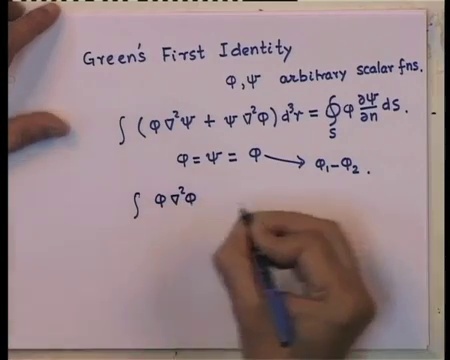 Green's First Identity
φ, ψ arbitrary scalar fns.
∫ (φ ∇²ψ + ψ ∇²φ) d³r = ∮_S φ ∂ψ/∂n dS.
φ = ψ = φ ⟶ φ₁ - φ₂.
∫ φ ∇²φ